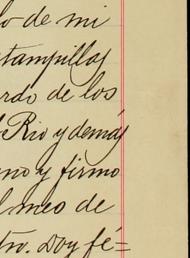 lo de mi
stampillas
rdo de los
Rio y demás
no y firmo
l mes de
tro. Doy fé=